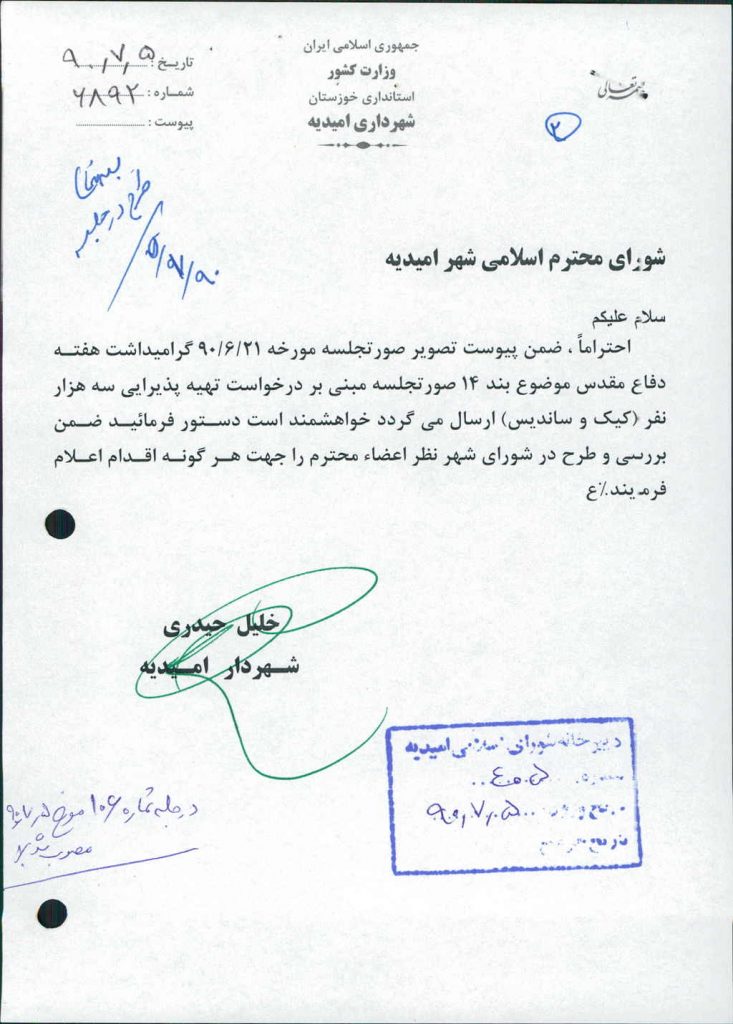 بسمه تعالی
جمهوری اسلامی ایران
وزارت کشور
استانداری خوزستان
شهرداری امیدیه
تاریخ : ۹۰/۷/۵
شماره : ۶۸۹۲
پیوست :
۲
طرح در جلسه
شورای محترم اسلامی شهر امیدیه
سلام علیکم
احتراماً ، ضمن پیوست تصویر صورتجلسه مورخه ۹۰/۶/۲۱ گرامیداشت هفته
دفاع مقدس موضوع بند ۱۴ صورتجلسه مبنی بر درخواست تهیه پذیرایی سه هزار
نفر (کیک و ساندیس) ارسال می گردد خواهشمند است دستور فرمائید ضمن
بررسی و طرح در شورای شهر نظر اعضاء محترم را جهت هر گونه اقدام اعلام
فرمیند.٪ع
خلیل حیدری
شهردار امیدیه
دبیرخانه شورای اسلامی امیدیه
شماره
تاریخ ورود ۹۰/۷/۰۵
در جلسه شماره ۱۰۶ مورخ
مصوب شد